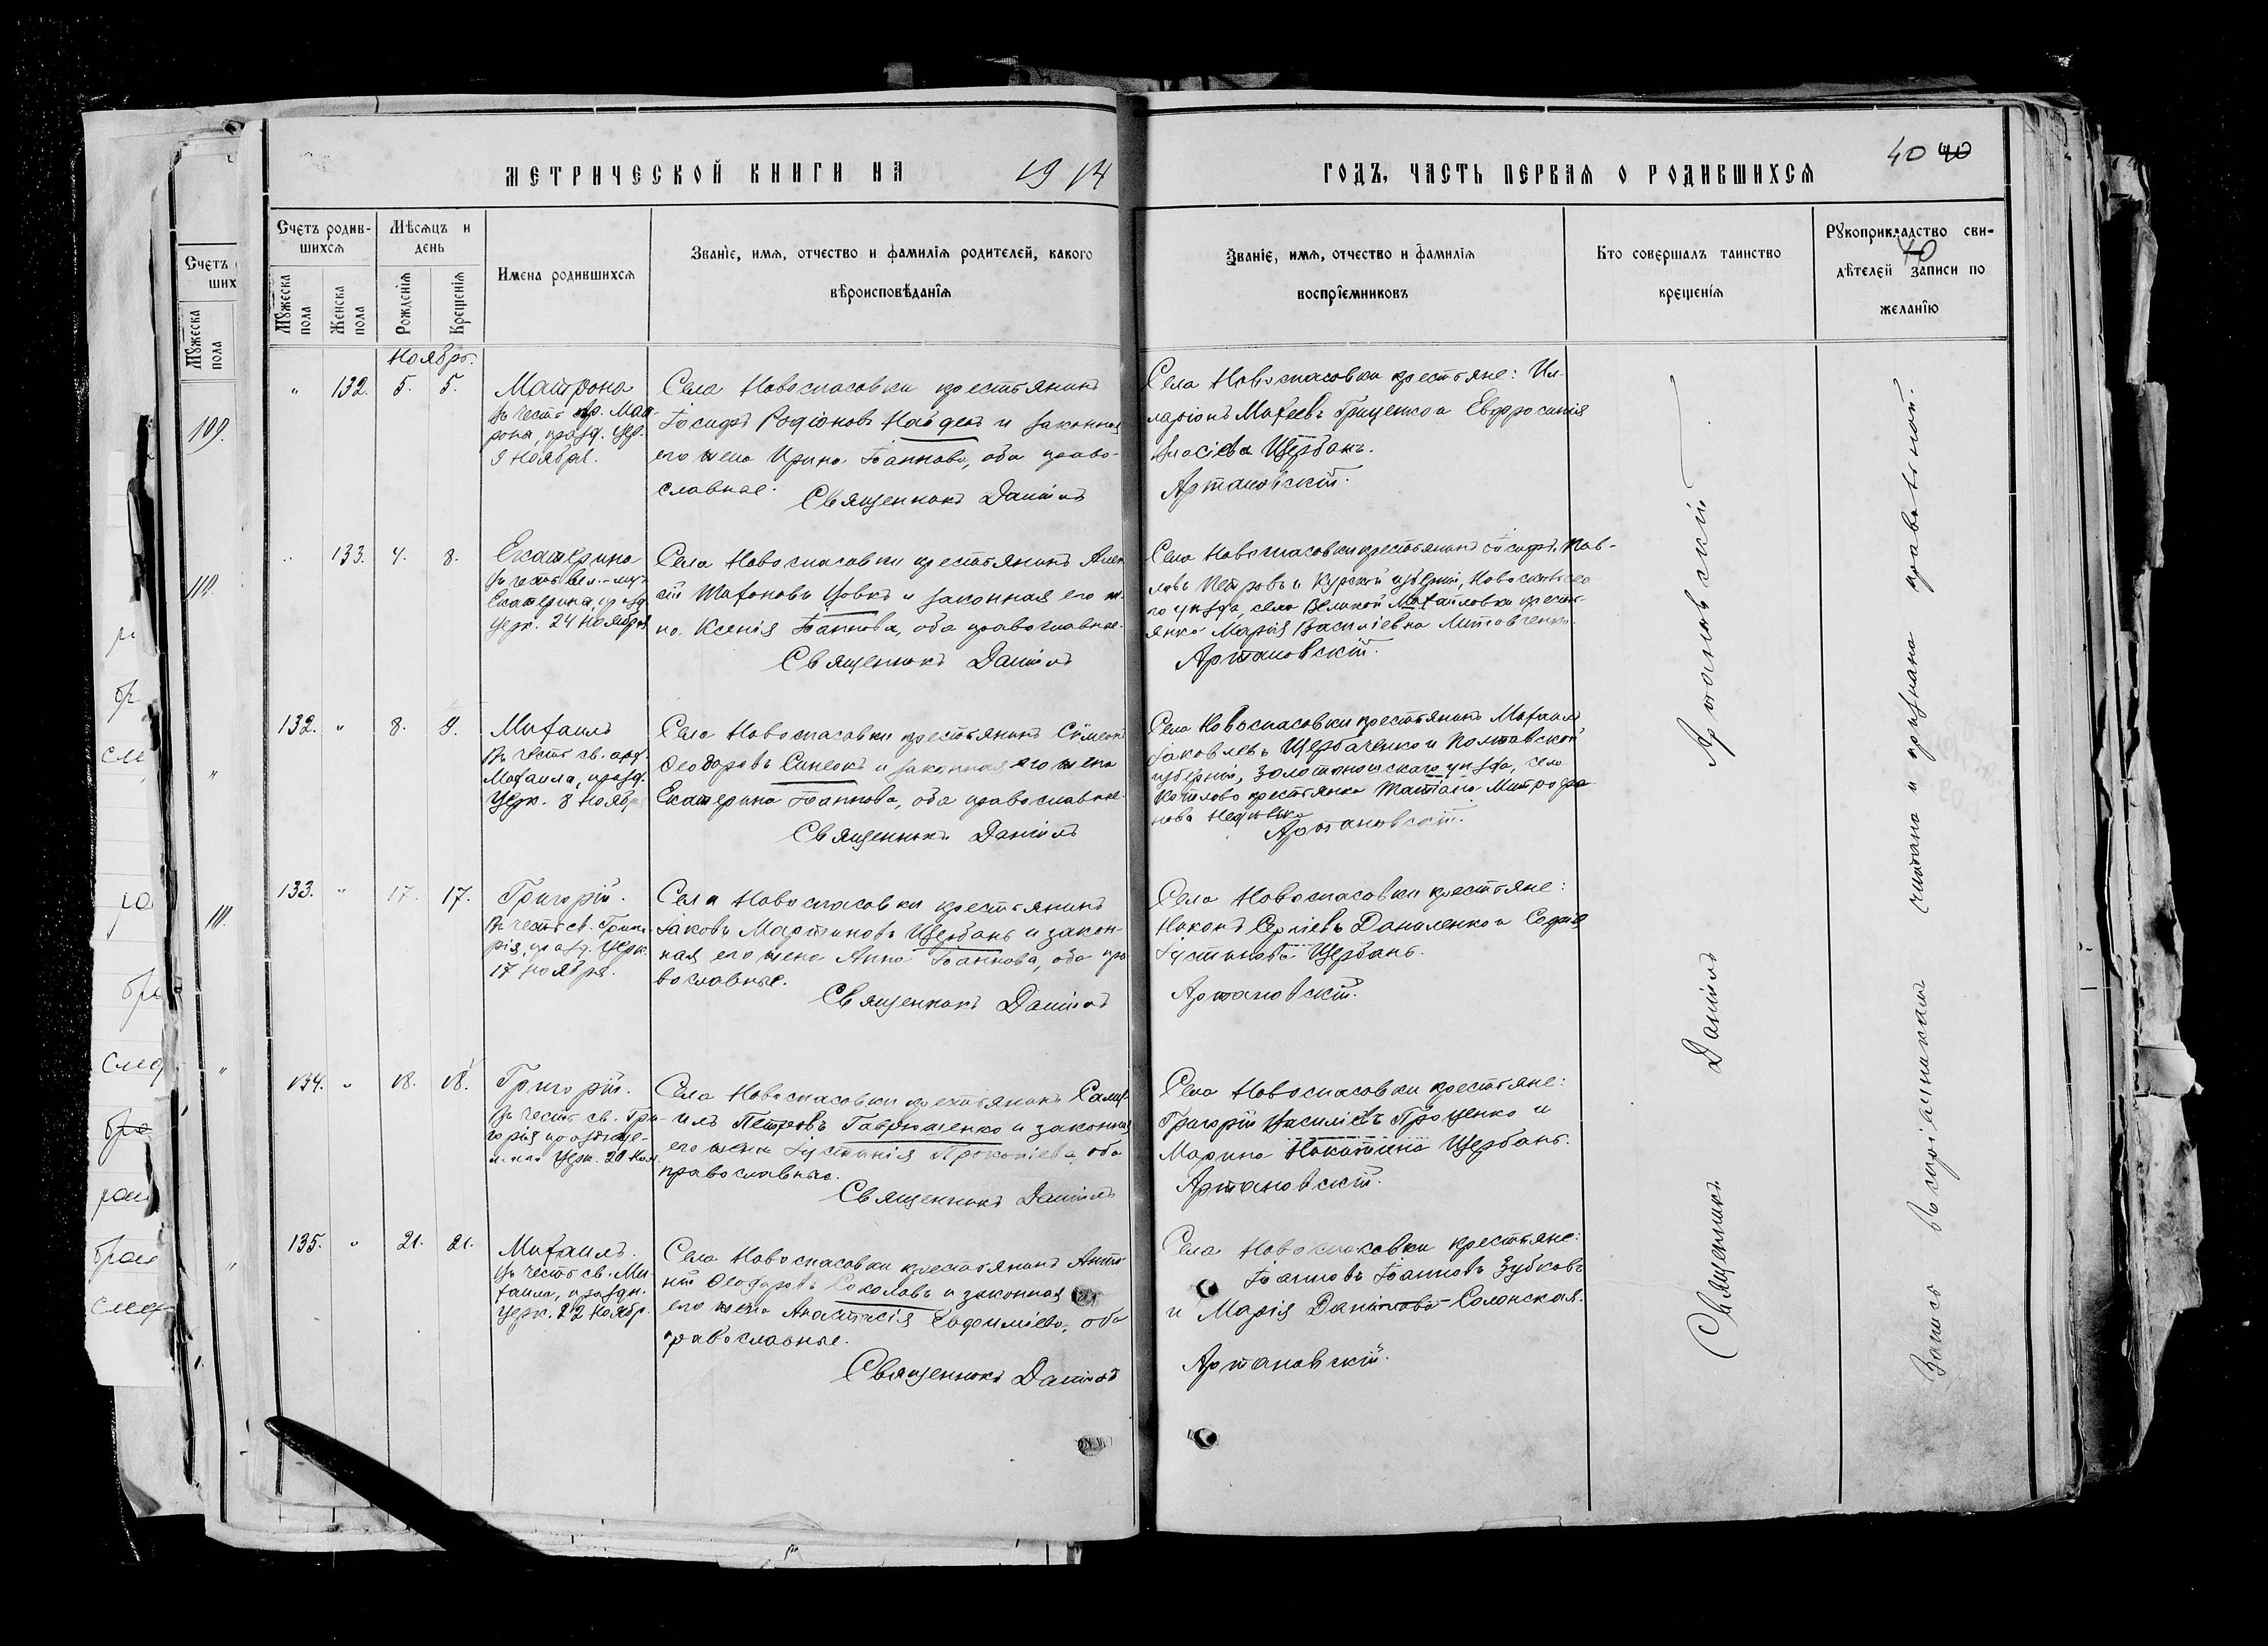 МЕТРИЧЕСКОЙ КНИГИ НА 1914 ГОДЪ, ЧАСТЬ ПЕРВАЯ О РОДИВШИХСЯ
40 40
Счетъ родив-
шихся
Мужеска пола
Женска пола
Мѣсяцъ и
день
Рожденія
Крещенія
Имена родившихся
Званіе, имя, отчество и фамилія родителей, какого
вѣроисповѣданія
Званіе, имя, отчество и фамилія
воспріемниковъ
Кто совершалъ таинство
крещенія
Рукоприкладство сви-
дѣтелей записи по
желанію
40
Ноябрь.
" 132. 5. 5.
Матрона
Въ честь пр. Мат-
рона, празд. цер.
9 Ноября.
Села Новоспасовки крестьянинъ
Іосифъ Родіоновъ Найденъ и законная
его жена Ирина Іоаннова, оба право-
славные.
Священникъ Даніилъ
Села Новоспасовки крестьяне: Ил-
ларіонъ Матѳеевъ Гриценко и Евфросинія
Власіева Щербань.
Артановскій.
" 133. 4. 8.
Екатерина
Въ честь вел.-муч.
Екатерина, празд.
церк. 24 Ноября
Села Новоспасовки крестьянинъ Алек
сій и законная его же-
на Ксенія Іоаннова, оба православные.
Священникъ Даніилъ
Села Новоспасовки крестьянинъ Іосифъ Пав-
ловъ Петровъ и Курской губерніи, Новооскольска
го уѣзда, села Великой Михайловки кресть-
янка Марія Васильевна
Артановскій.
132. " 8. 9.
Михаилъ
Въ честь св. арх.
Михаила, празд.
церк. 8 Ноября
Села Новоспасовки крестьянинъ Сѵмеонъ
Ѳеодоровъ Синеокъ и законная его жена
Екатерина Іоаннова, оба православные.
Священникъ Даніилъ
Села Новоспасовки крестьянинъ Михаилъ
Іаковлевъ Щербаченко и Полтавской
губерніи, Золотоношскаго уѣзда, села
крестьянка Татіана Митрофа
нова
Артановскій.
133. " 17. 17.
Григорій.
Въ честь св. Григо
рія, празд. церк.
17 Ноября.
Села Новоспасовки крестьянинъ
Іаковъ Мартиновъ Щербань и закон-
ная его жена Анна Іоаннова, оба пра
вославные.
Священникъ Даніилъ
Села Новоспасовки крестьяне:
Никонъ Сергіевъ Даниленко и Софія
Іустинова Щербань.
Артановскій.
134. " 18. 18.
Григорій.
Въ честь св. Гри-
горія празднуе-
церк. 20 Ноя.
Села Новоспасовки крестьянинъ
Петровъ Гаврюшенко и законная
его жена Іустинія Прокопіева, оба
православные.
Священникъ Даніилъ
Села Новоспасовки крестьяне:
Григорій Василіевъ Проценко и
Марина Никитина Щербань.
Артановскій.
135. " 21. 21.
Михаилъ.
Въ честь св. Ми
хаила, праздн.
церк. 22 Ноябр.
Села Новоспасовки крестьянинъ Анто
ній Ѳеодоровъ Соколовъ и законная
его жена Анастасія Евфиміева, оба
православные.
Священникъ Даніилъ
Села Новоспасовки крестьяне:
Іоанновъ Іоанновъ Зубковъ
и Марія Даніилова Солонская.
Артановскій.
Священникъ Даніилъ Артановскій
Запись воспріемникамъ читана и признана правильной.